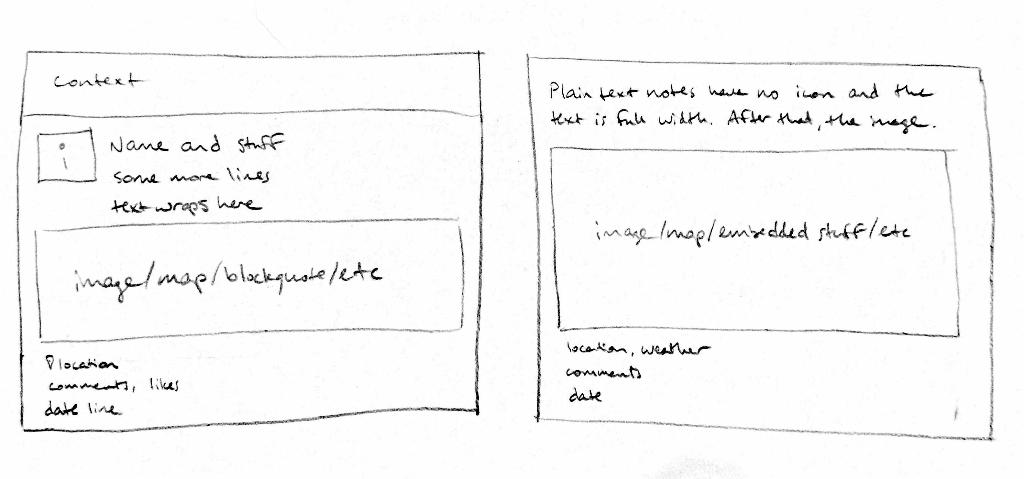 context
i
Name and stuff
some more lines
text wraps here
image/map/blockquote/etc
location
comments, likes
date line
Plain text notes have no icon and the
text is full width. After that, the image.
image/map/embedded stuff/etc
location, weather
comments
date